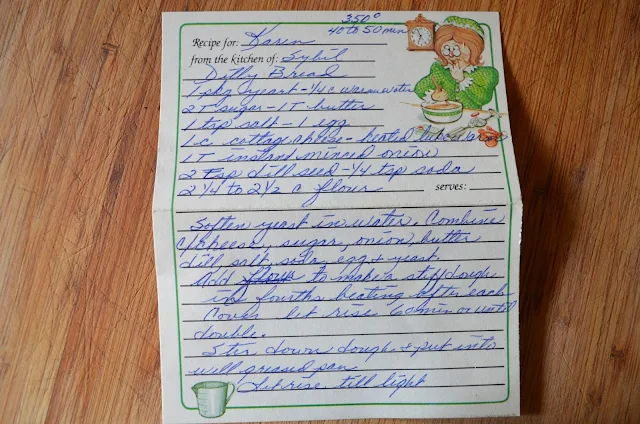 350°
40 to 50 min
Recipe for: Karen
from the kitchen of: Sybil
Dilly Bread
1 pkg yeast - ¼ c warm water
2 T sugar - 1 T butter
1 tsp salt - 1 egg
1 c. cottage cheese - heated lukewarm
1 T instant minced onion
2 tsp dill seed - ¼ tsp soda
2 ¼ to 2 ½ c flour serves:
Soften yeast in water. Combine
c/cheese, sugar, onion, butter
dill salt, soda, egg & yeast.
Add flour to make a stiff dough
in fourths beating after each
Cover let rise 60 min or until
double.
Stir down dough & put into
well greased pan
Let rise till light